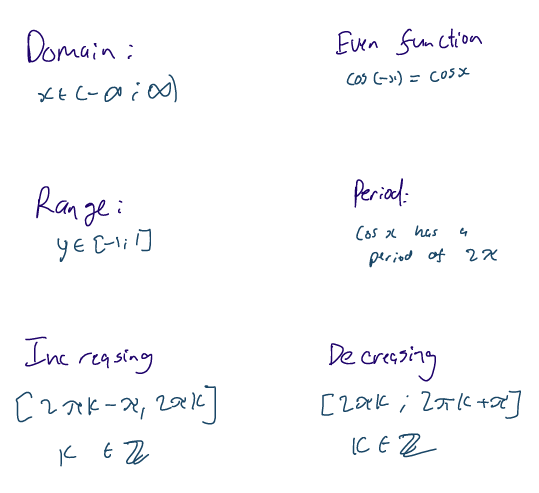 Domain:
x ∈ (-∞ ; ∞)
Even function
cos(-x) = cosx
Range:
y ∈ [-1; 1]
Period:
Cos x has a
period of 2π
Increasing
[2πk-π, 2πk]
k ∈ ℤ
Decreasing
[2πk ; 2πk+π]
k ∈ ℤ